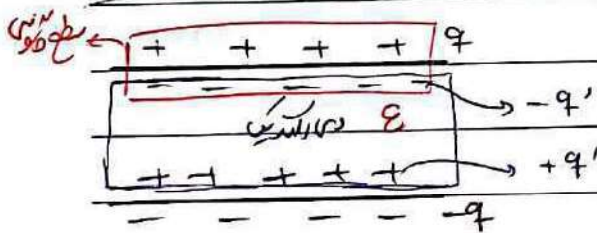 سطح گاوسی + + + + q
- - - - - -q'
دی‌الکتریک ε
+ + + + + +q'
- - - - -q